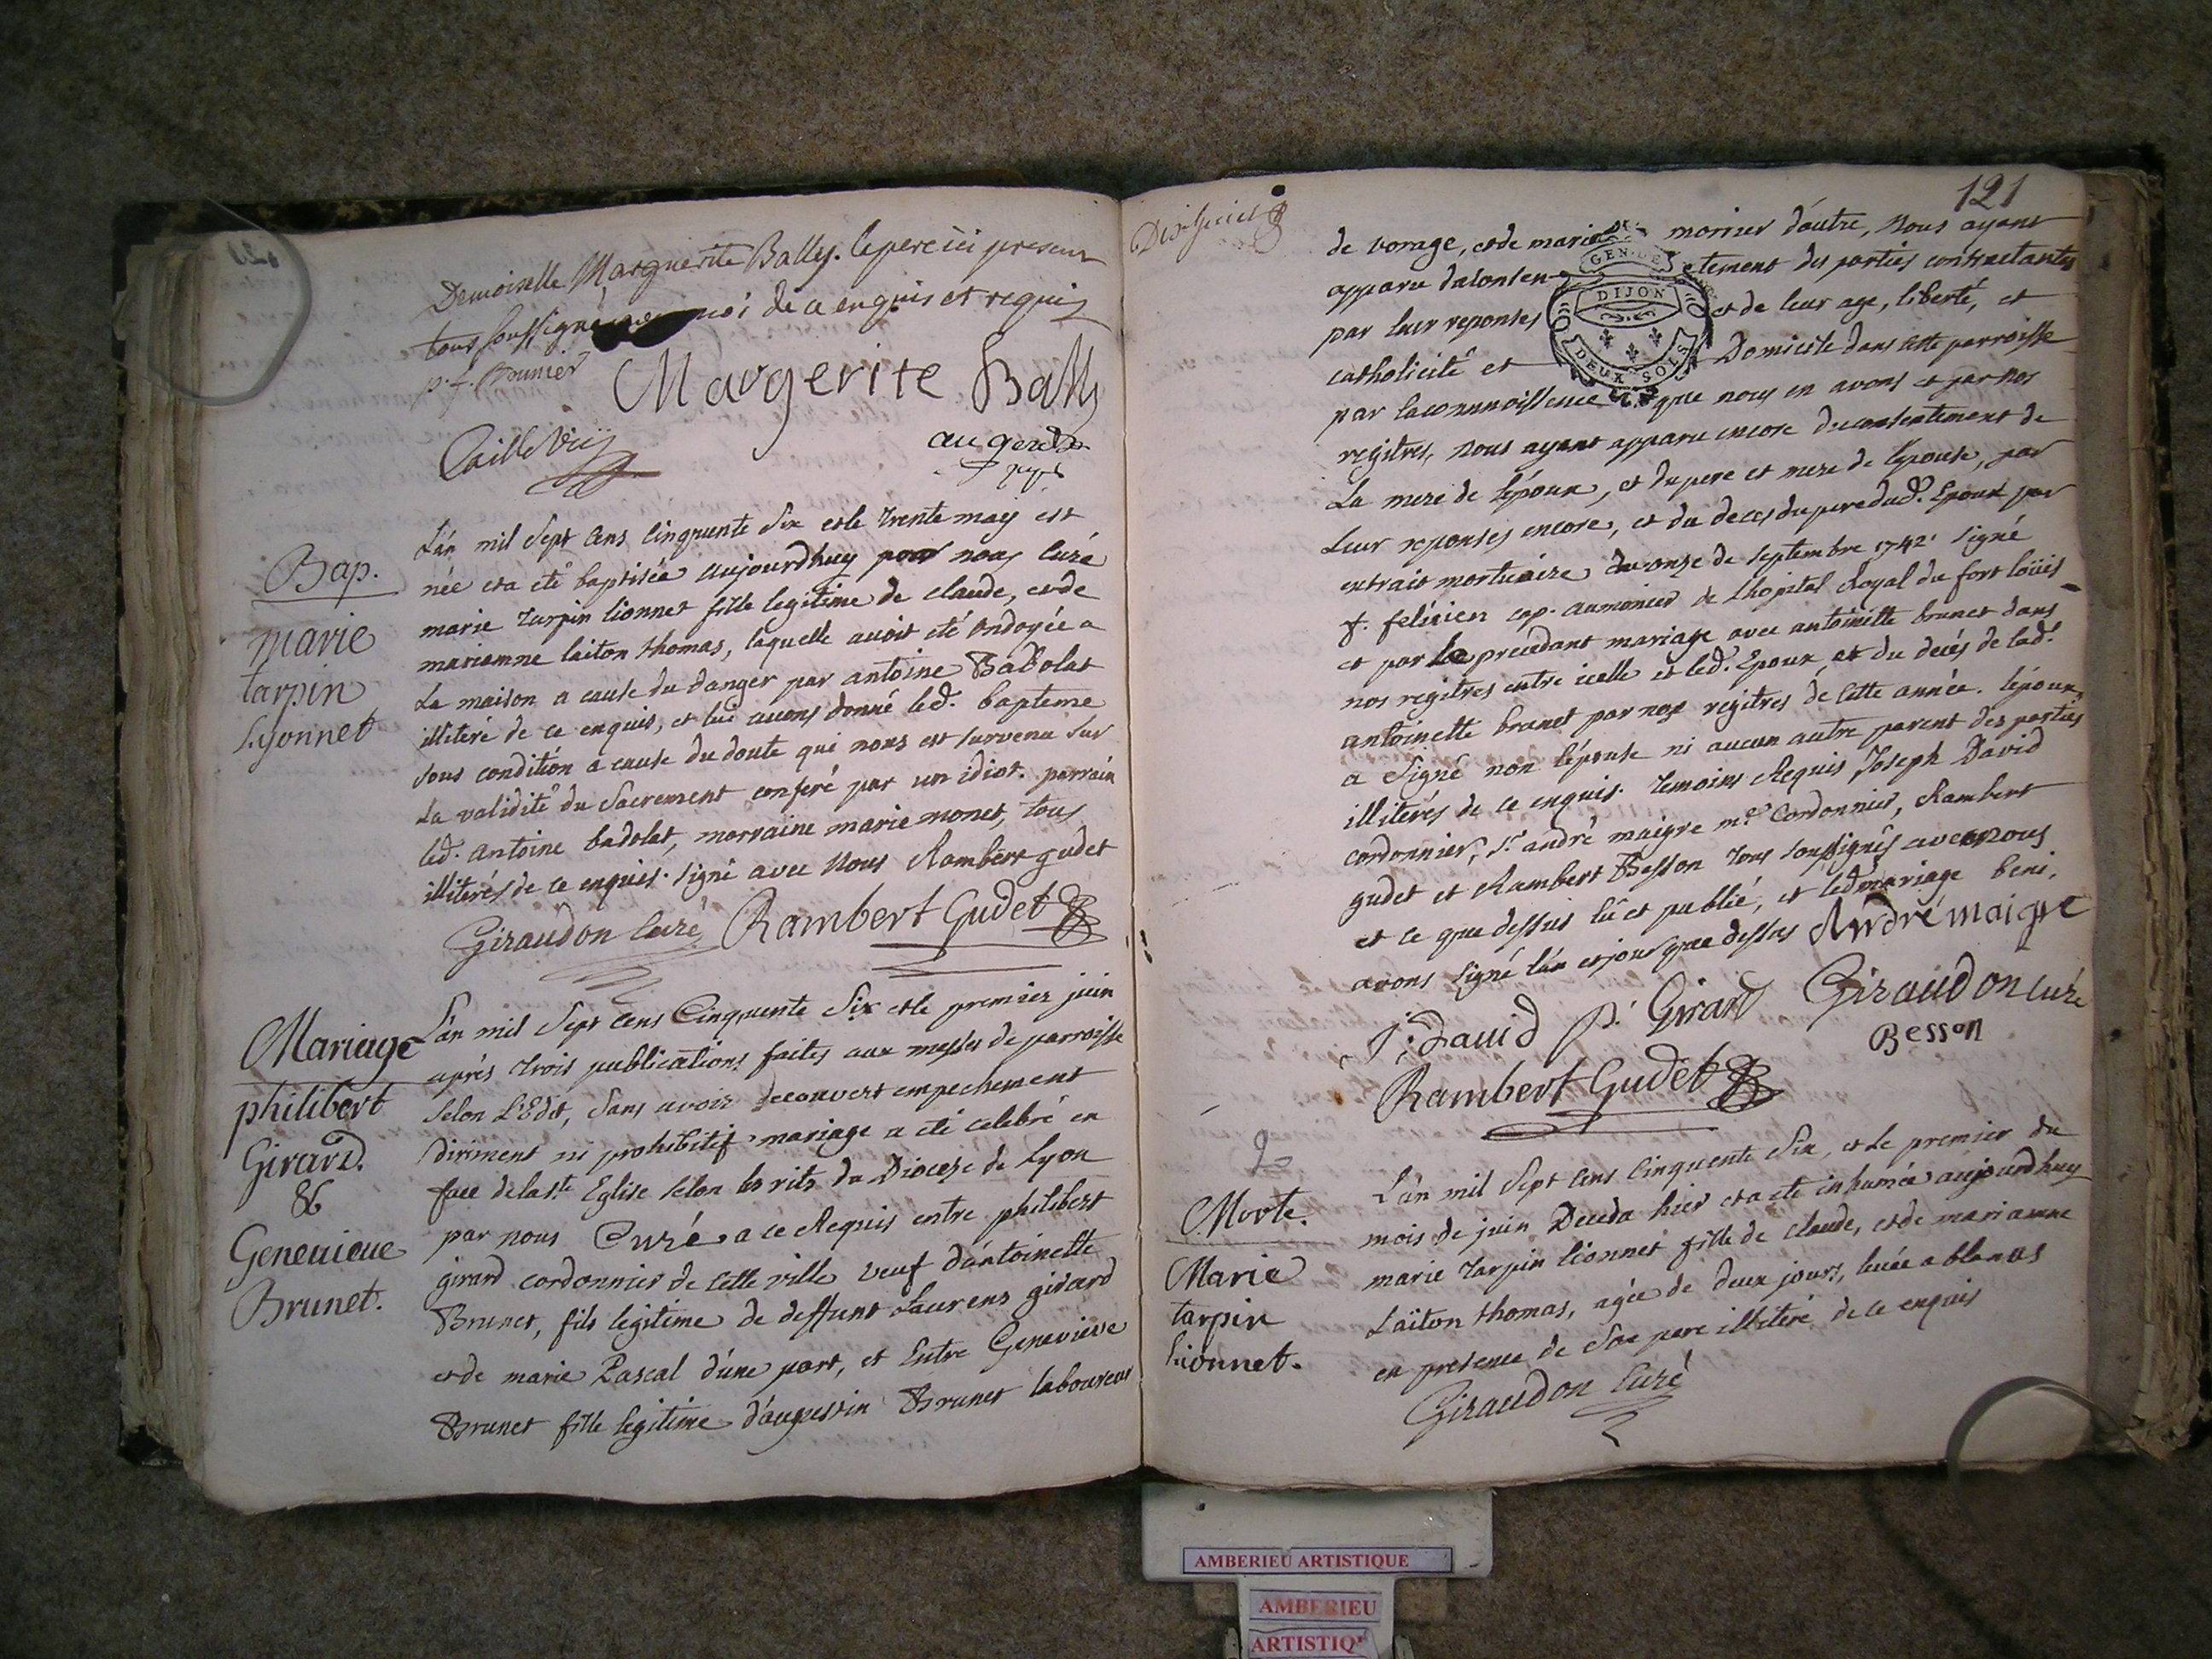 Demoiselle Marguerite Bally. le pere ici present
tous soussigné moi de a enquis et requis
p. f. Bounier
Margerite Bally
auger
L'an mil Sept Cens Cinquante Six et le trente may est
née et a eté baptisée aujourdhuy par nous Curé
marie tarpin lionnet fille legitime de claude, et de
marianne laiton thomas, laquelle avoit eté ondoyée a
La maison a cause du danger par antoine Badolat
illiteré de ce enquis, et lui avons donné led. bapteme
sous condition a cause du doute qui nous est survenu sur
La validité du Sacrement conferé par un idiot. parrain
led. antoine badolat, marraine marie monet, tous
illiterés de ce enquis. signé avec nous Rambert gudet
Giraudon Curé Rambert Gudet
Bap.
marie
tarpin
Lyonnet
L'an mil Sept Cens Cinquante Six et le premier juin
après trois publications faites aux messes de parroisse
selon L'Edit, sans avoir decouvert empechement
diriment ni prohibitif mariage a eté celebré en
face de la ste Eglise selon les rits du Diocese de Lyon
par nous Curé a ce Requis entre philibert
girard cordonnier de cette ville veuf d'antoinette
Brunet, fils legitime de deffunt Laurens girard
et de marie Pascal d'une part, et Entre Genevieve
Brunet fille legitime d'augustin Brunet laboureur
Mariage
philibert
Girard.
&
Genevieve
Brunet.
121
de vorage, et de marie morrier d'autre, nous ayant
apparu du consentement des parties contractantes
par leur reponses et de leur age, liberté, et
catholicité et Domicile dans cette parroisse
par la connoissance que nous en avons et par nos
registres, nous ayant apparu encore du consentement de
La mere de l'époux, et du pere et mere de l'épouse, par
Leur reponses encore, et du deces du pere dud. Epoux par
extrait mortuaire du onze de septembre 1742 signé
f. felicien cap. aumonier de Lhopital Royal du fort loüis
et par le precedant mariage avec antoinette brunet dans
nos registres entre icelle et led. Epoux, et du decés de lad.
antoinette brunet par nos registres de cette année. l'époux
a signé non l'épouse ni aucun autre parent des parties
illiterés de ce enquis. temoins Requis Joseph David
cordonnier, Sr andré maigre me Cordonnier, Rambert
gudet et Rambert Besson tous soussignés avec nous
et ce que dessus lû et publié, et led mariage beni,
avons signé l'an et jour que dessus André maigre
J. David P. Girard Giraudon Curé
Besson
Rambert Gudet
GEN. DE
DIJON
DEUX SOLS
L'an mil Sept Cens Cinquante Six, et le premier du
mois de juin Deceda hier et a eté inhumée aujourdhuy
marie tarpin lionnet fille de claude, et de marianne
Laiton thomas, agée de deux jours,
en presence de son pere illiteré de ce enquis
Giraudon Curé
Morte.
Marie
tarpin
lionnet.
AMBERIEU ARTISTIQUE
AMBERIEU
ARTISTIQ